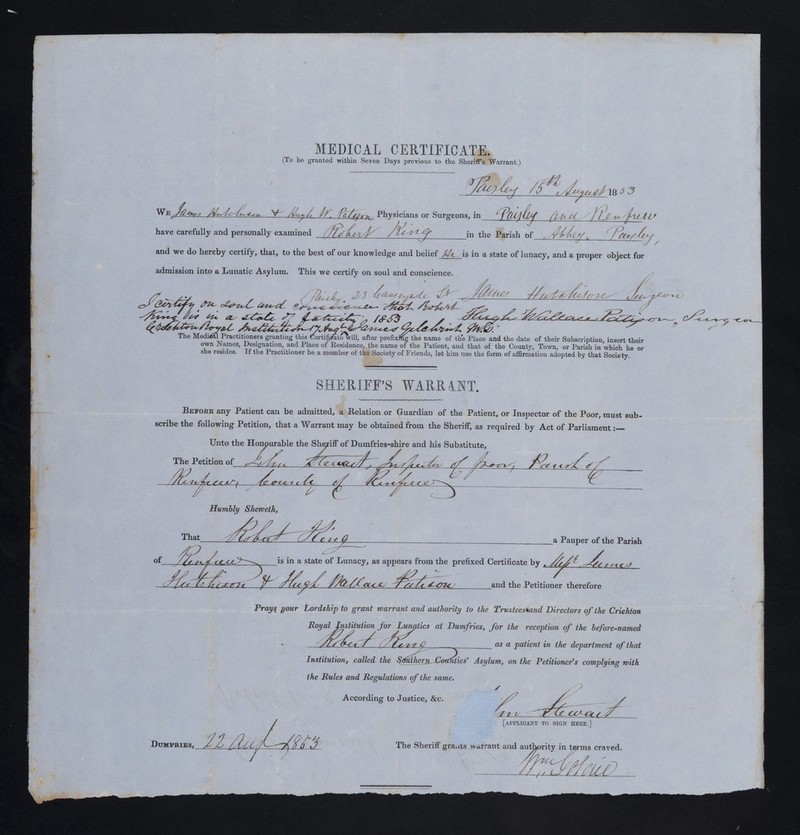 MEDICAL CERTIFICATE.
(To be granted within Seven Days previous to the Sheriff's Warrant.)
Paisley 15th August 1853
WE James Hutchison & Hugh W. Patison Physicians or Surgeons, in Paisley and Renfrew
have carefully and personally examined Robert King in the Parish of Abbey, Paisley,
and we do hereby certify, that, to the best of our knowledge and belief He is in a state of lunacy, and a proper object for
admission into a Lunatic Asylum. This we certify on soul and conscience.
Paisley 23 Causeyside St James Hutchison Surgeon
I certify on soul and conscience that Robert
King is in a state of fatuity, 1853 Hugh Wallace Patison, Surgeon
Crichton Royal Institution 17 Augt James Gilchrist M.D.
The Medical Practitioners granting this Certificate will, after prefixing the name of the Place and the date of their Subscription, insert their
own Names, Designation, and Place of Residence, the name of the Patient, and that of the County, Town, or Parish in which he or
she resides. If the Practitioner be a member of the Society of Friends, let him use the form of affirmation adopted by that Society.
SHERIFF'S WARRANT.
BEFORE any Patient can be admitted, a Relation or Guardian of the Patient, or Inspector of the Poor, must sub-
scribe the following Petition, that a Warrant may be obtained from the Sheriff, as required by Act of Parliament:—
Unto the Honourable the Sheriff of Dumfries-shire and his Substitute,
The Petition of John Stewart, Inspector of poor, Parish of
Renfrew, County of Renfrew
Humbly Sheweth,
That Robert King a Pauper of the Parish
of Renfrew is in a state of Lunacy, as appears from the prefixed Certificate by Messrs James
Hutchison & Hugh Wallace Patison and the Petitioner therefore
Prays your Lordship to grant warrant and authority to the Trustees and Directors of the Crichton
Royal Institution for Lunatics at Dumfries, for the reception of the before-named
Robert King as a patient in the department of that
Institution, called the Southern Counties' Asylum, on the Petitioner's complying with
the Rules and Regulations of the same.
According to Justice, &c.
Stewart
[APPLICANT TO SIGN HERE.]
DUMFRIES, 22 Augt 1853 The Sheriff grants warrant and authority in terms craved.
Wm Goldie